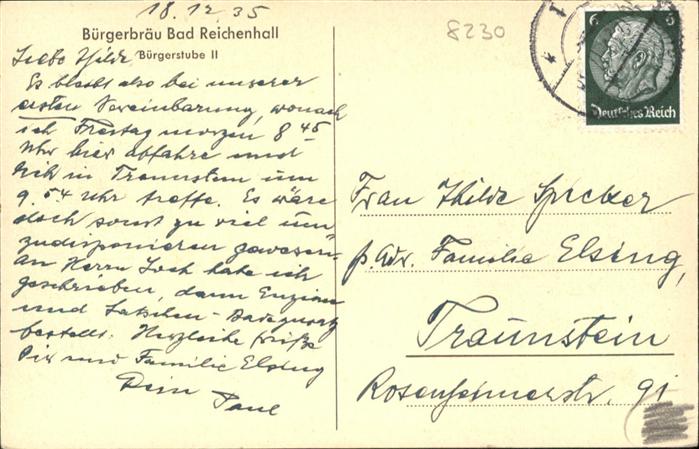 18.12.35
8230
Bürgerbräu Bad Reichenhall
Bürgerstube II
6
Deutsches Reich
Liebe Thilde
Es bleibt also bei unserer
ersten Vereinbarung, wonach
ich Freitag morgen 8 45
Uhr hier abfahre und
Dich in Traunstein um
9.54 Uhr treffe. Es wäre
doch sonst zu viel um
zudisponieren gewesen.
An Herrn habe ich
geschrieben, dann Enzian
und Latschen-
bestellt. Herzliche Grüße
Dir und Familie Elsing
Dein Paul
Frau Thilde Specker
p. Adr. Familie Elsing,
Traunstein
Rosenheimerstr. 91